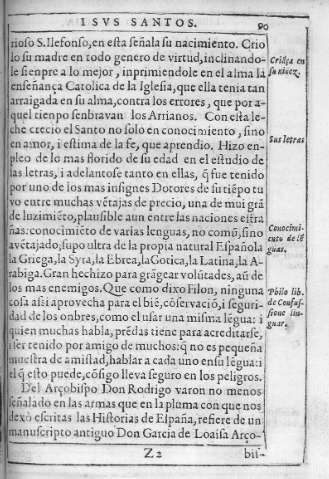 I SVS SANTOS.
90
rioso S. Ilefonso, en esta señala su nacimiento. Crio
lo su madre en todo genero de virtud, inclinando-
le sienpre a lo mejor, inprimiendole en el alma la
enseñança Catolica de la Iglesia, que ella tenia tan
arraigada en su alma, contra los errores, que por a-
quel tienpo senbravan los Arrianos. Con esta le-
che crecio el Santo no solo en conocimiento, sino
en amor, i estima de la fe, que aprendio. Hizo en-
pleo de lo mas florido de su edad en el estudio de
las letras, i adelantose tanto en ellas, q̃ fue tenido
por uno de los mas insignes Dotores de su tiẽpo tu
vo entre muchas vẽtajas de precio, una de mui grã
de luzimiẽto, plausible aun entre las naciones estra
ñas: conocimiẽto de varias lenguas, no comũ, sino
avẽtajado; supo ultra de la propia natural Española
la Griega, la Syra, la Ebrea, la Gotica, la Latina, la A-
rabiga. Gran hechizo para grãgear volũtades, aũ de
los mas enemigos. Que como dixo Filon, ninguna
cosa assi aprovecha para el biẽ, cõservaciõ, i seguri-
dad de los onbres, como el usar una misma lẽgua: i
quien muchas habla, prẽdas tiene para acreditarse,
i ser tenido por amigo de muchos: q̃ no es pequeña
muestra de amistad, hablar a cada uno en su lẽgua: i
el q̃ esto puede, cõsigo lleva seguro en los peligros.
Del Arçobispo Don Rodrigo varon no menos
señalado en las armas que en la pluma con que nos
dexò escritas las Historias de España, refiere de un
manuscripto antiguo Don Garcia de Loaisa Arço-
Z 2
bis-
Criãça en
su niñez.
Sus letras
Conocimi-
ento de lẽ
guas.
Philo lib.
de Confus-
sione lin-
guar.